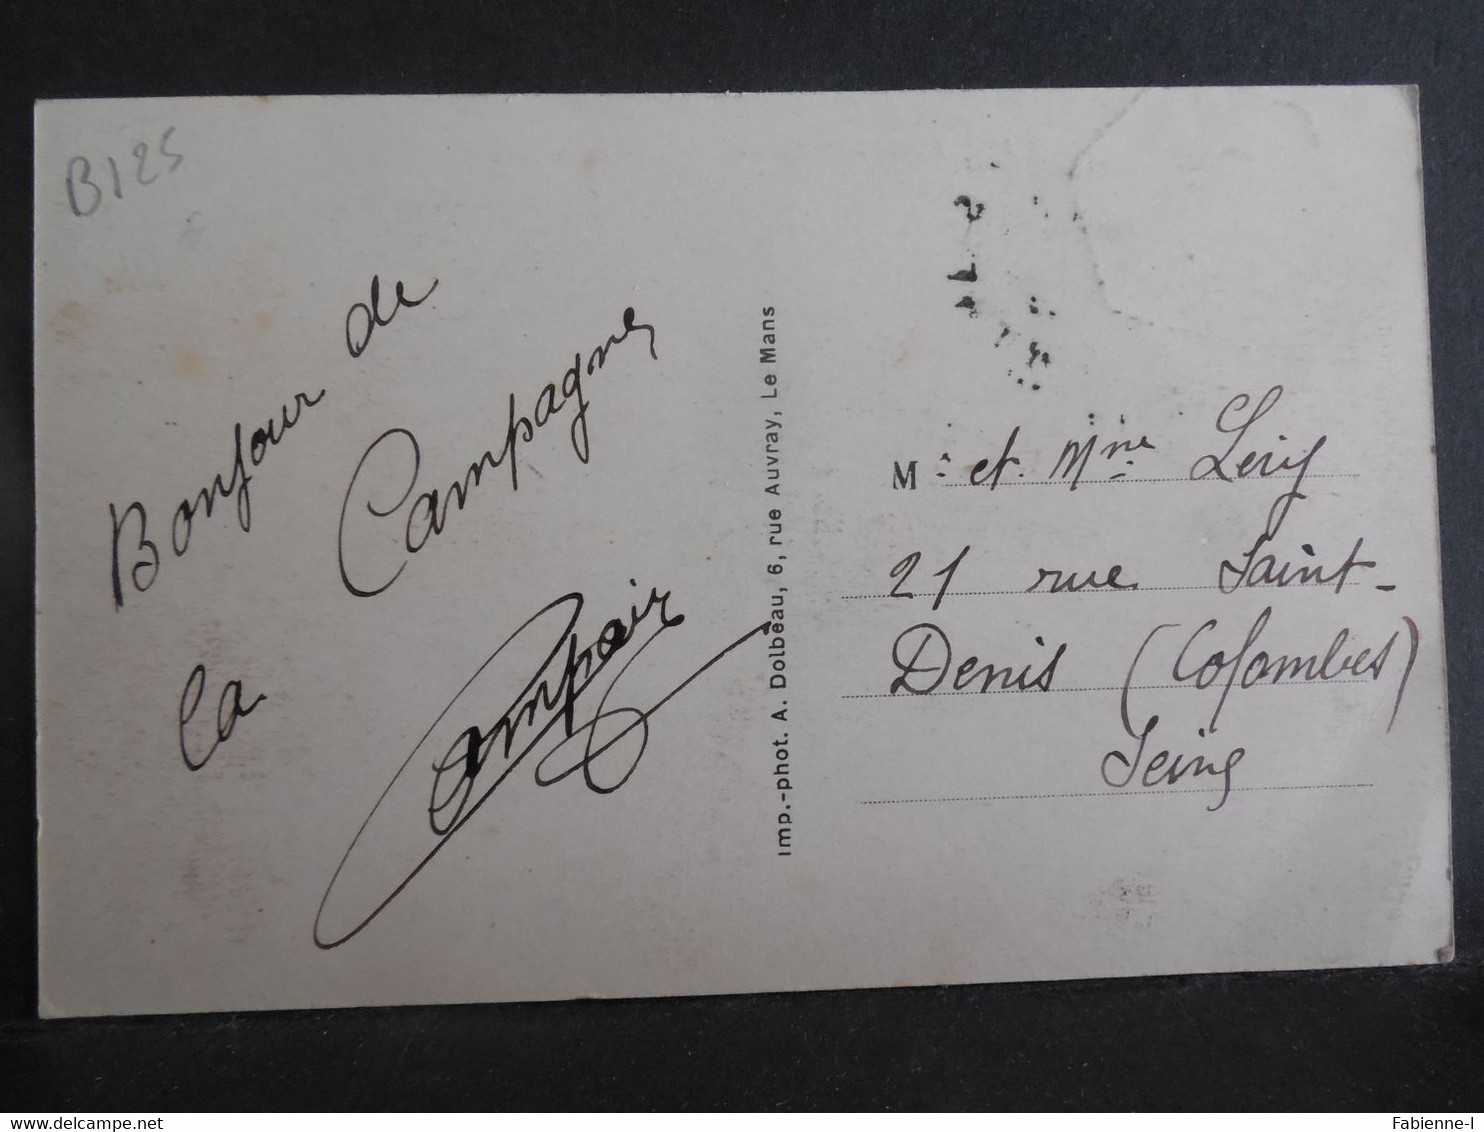 B125
Bonjour de
la Campagne
Compair
Imp.-phot. A. Dolbeau, 6, rue Auvray, Le Mans
M. et Mme Lévy
21 rue Saint-
Denis (Colombes)
Seine
www.delcampe.net
Fabienne-l